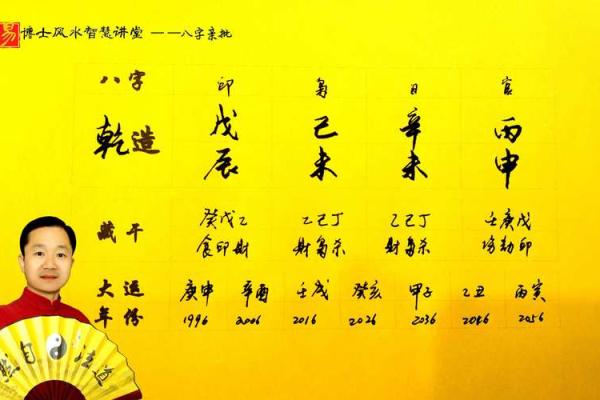 易 博士风水智慧讲堂 ——八字亲批
八字 印 枭 日 官
乾造 戊辰 己未 辛未 丙申
藏干 癸戊乙 乙己丁 乙己丁 壬庚戊
食印财 财枭杀 财枭杀 伤劫印
大运 庚申 辛酉 壬戌 癸亥 甲子 乙丑 丙寅
年份 1996 2006 2016 2026 2036 2046 2056
然自 法道